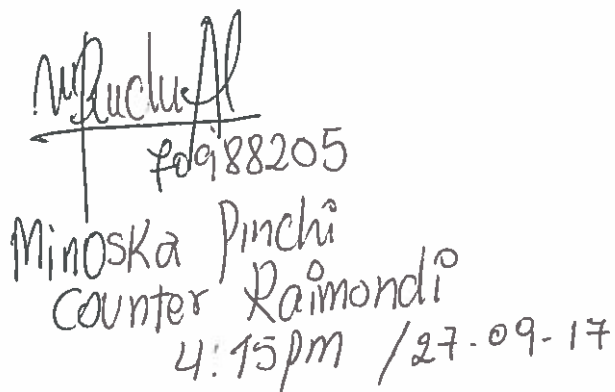 70988205
Minoska Pinchi
Counter Raimondi
4:15pm / 27-09-17